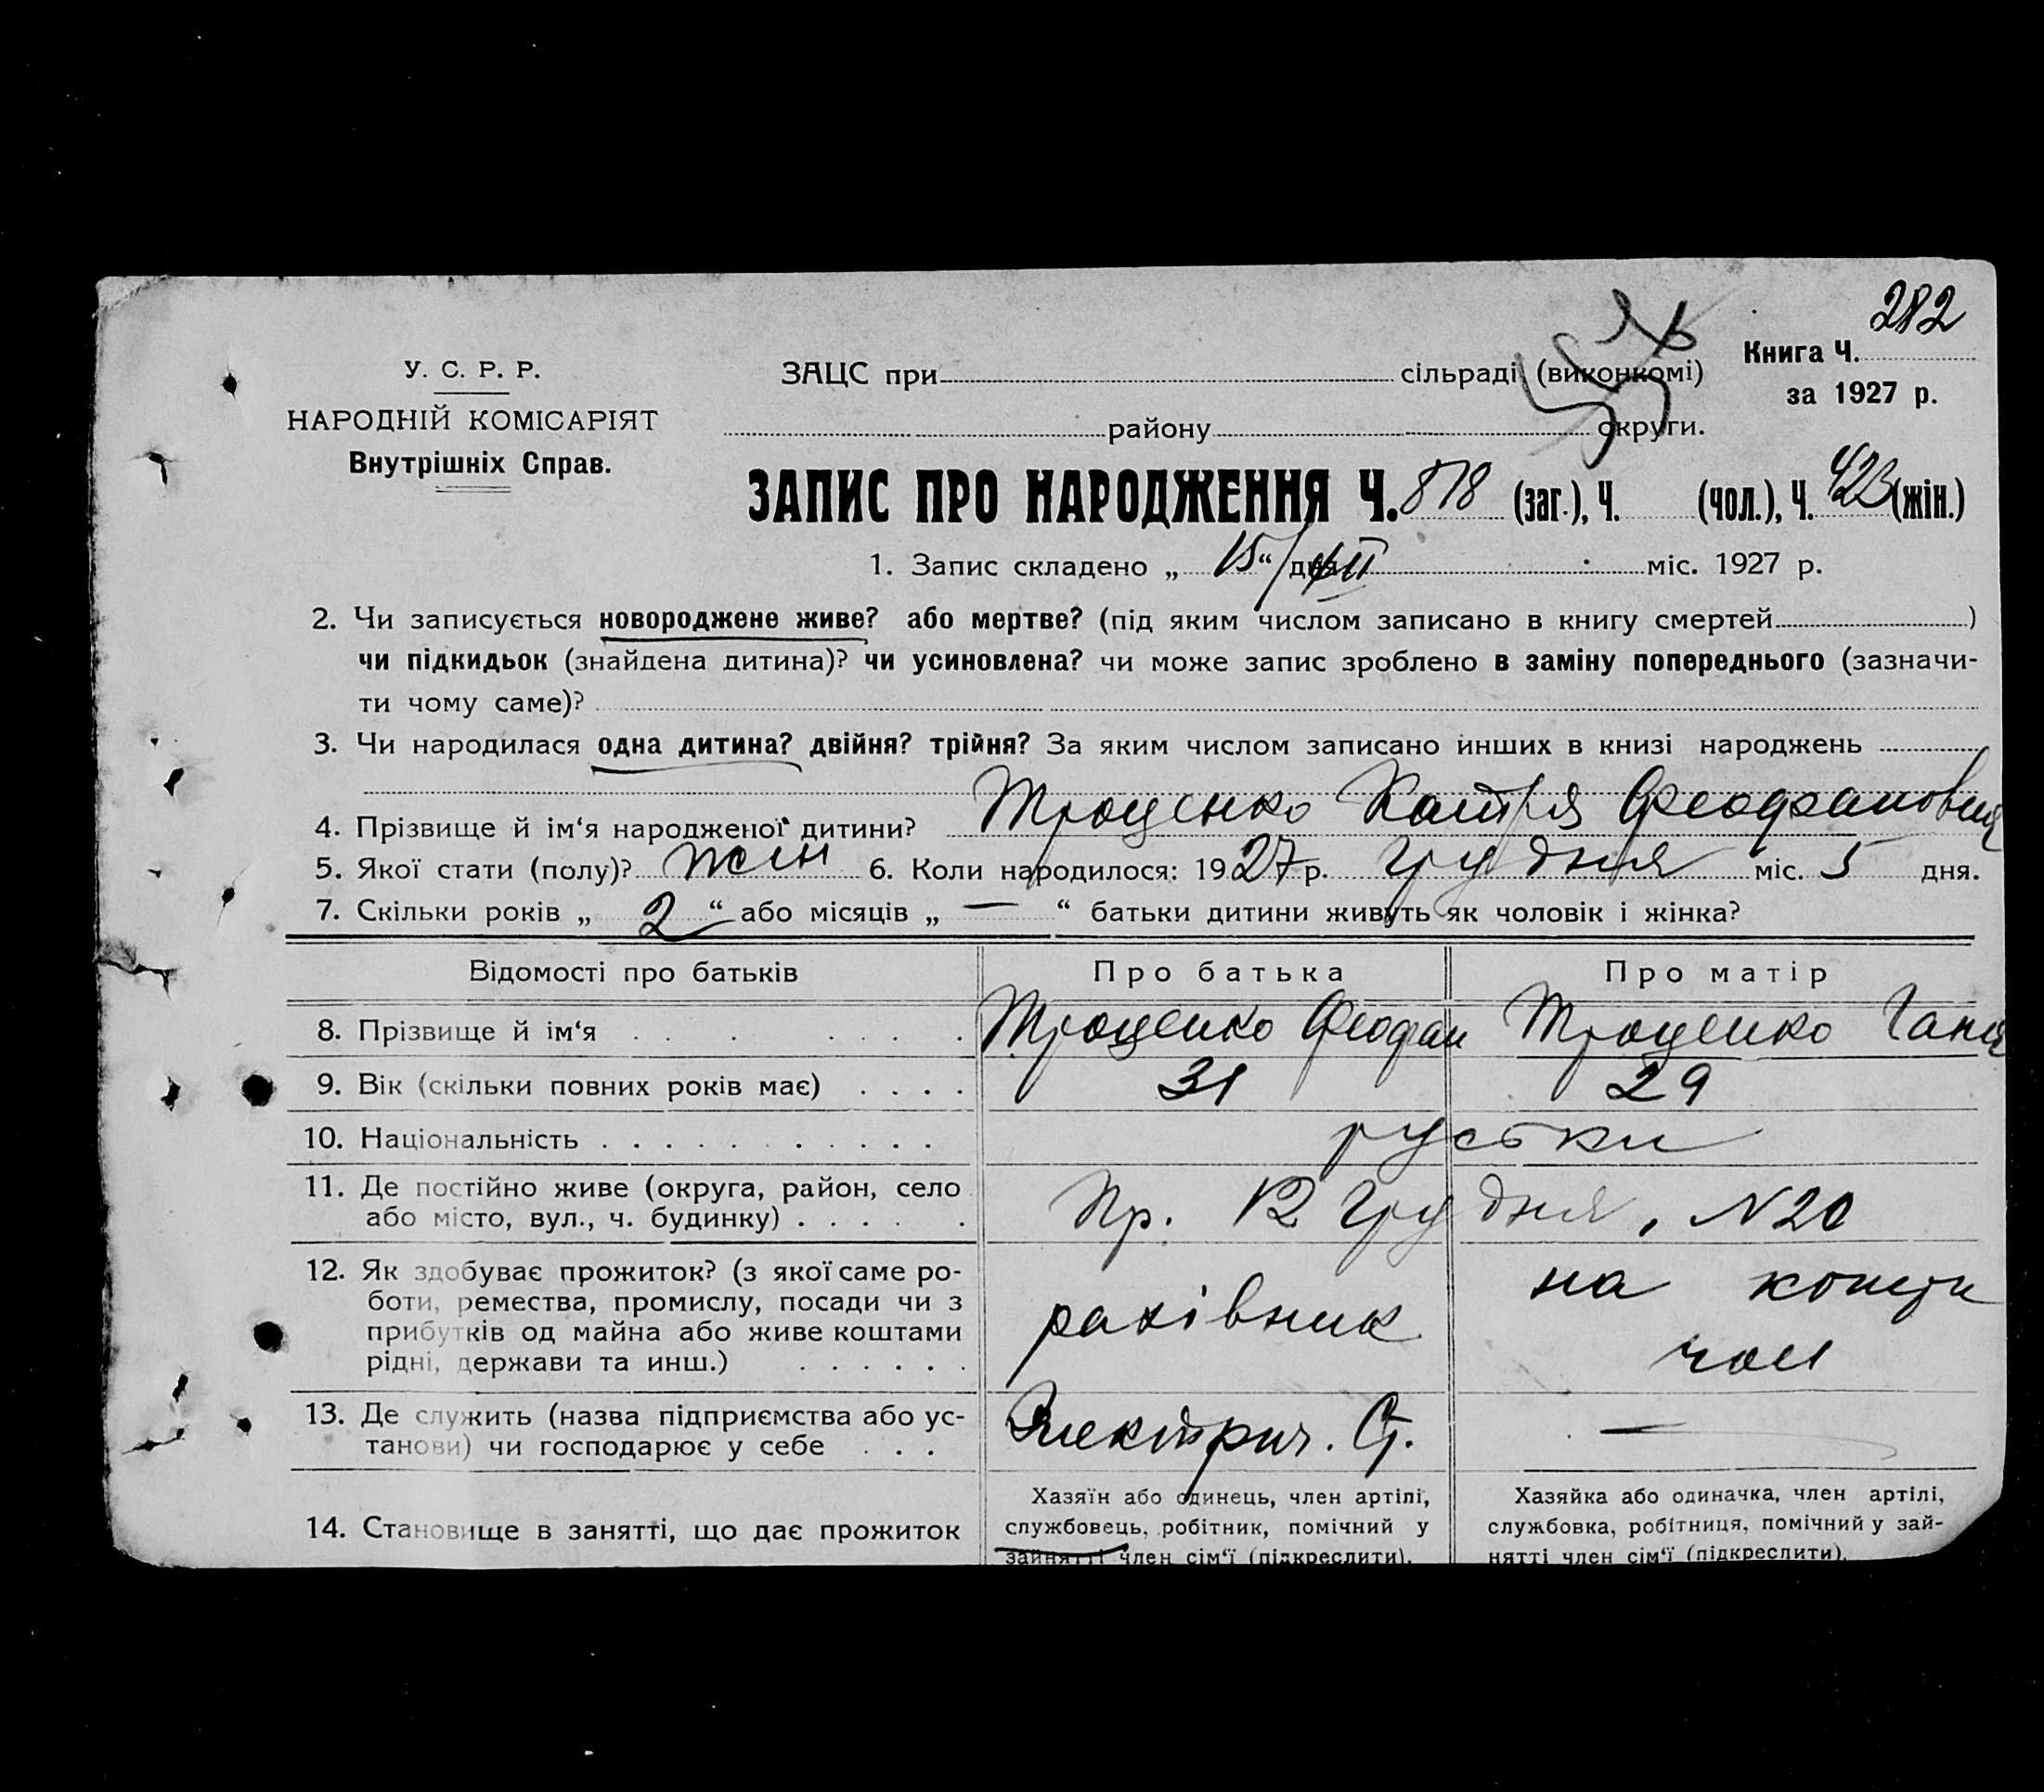 282
У. С. Р. Р.
НАРОДНІЙ КОМІСАРІЯТ
Внутрішніх Справ.
ЗАЦС при сільраді (виконкомі)
району округи.
Книга Ч.
за 1927 р.
ЗАПИС ПРО НАРОДЖЕННЯ Ч. 878 (заг.), Ч. (чол.), Ч. 423 (жін.)
1. Запис складено „ 15 “ дня міс. 1927 р.
2. Чи записується новороджене живе? або мертве? (під яким числом записано в книгу смертей )
чи підкидьок (знайдена дитина)? чи усиновлена? чи може запис зроблено в заміну попереднього (зазначи-
ти чому саме)?
3. Чи народилася одна дитина? двійня? трійня? За яким числом записано инших в книзі народжень
4. Прізвище й ім‘я народженої дитини? Троценко Катря Феофановна
5. Якої стати (полу)? жін 6. Коли народилося: 1927 р. грудня міс. 5 дня.
7. Скільки років „ 2 “ або місяців „ — “ батьки дитини живуть як чоловік і жінка?
Відомості про батьків Про батька Про матір
8. Прізвище й ім‘я . . . . . . . Троценко Феофан Троценко Ганна
9. Вік (скільки повних років має) . . . . 31 29
10. Національність . . . . . . . . . . . руськи
11. Де постійно живе (округа, район, село
або місто, вул., ч. будинку) . . . . . Пр. 12 Грудня, N 20
12. Як здобуває прожиток? (з якої саме ро-
боти, ремества, промислу, посади чи з
прибутків од майна або живе коштами
рідні, держави та инш.) . . . . . .
рахівник
на кошти
чол
13. Де служить (назва підприємства або ус-
танови) чи господарює у себе . . .
Електрич. Ст.
—
14. Становище в занятті, що дає прожиток
Хазяїн або одинець, член артілі,
службовець, робітник, помічний у
зайнятті член сім‘ї (підкреслити).
Хазяйка або одиначка, член артілі,
службовка, робітниця, помічний у зай-
нятті член сім‘ї (підкреслити).